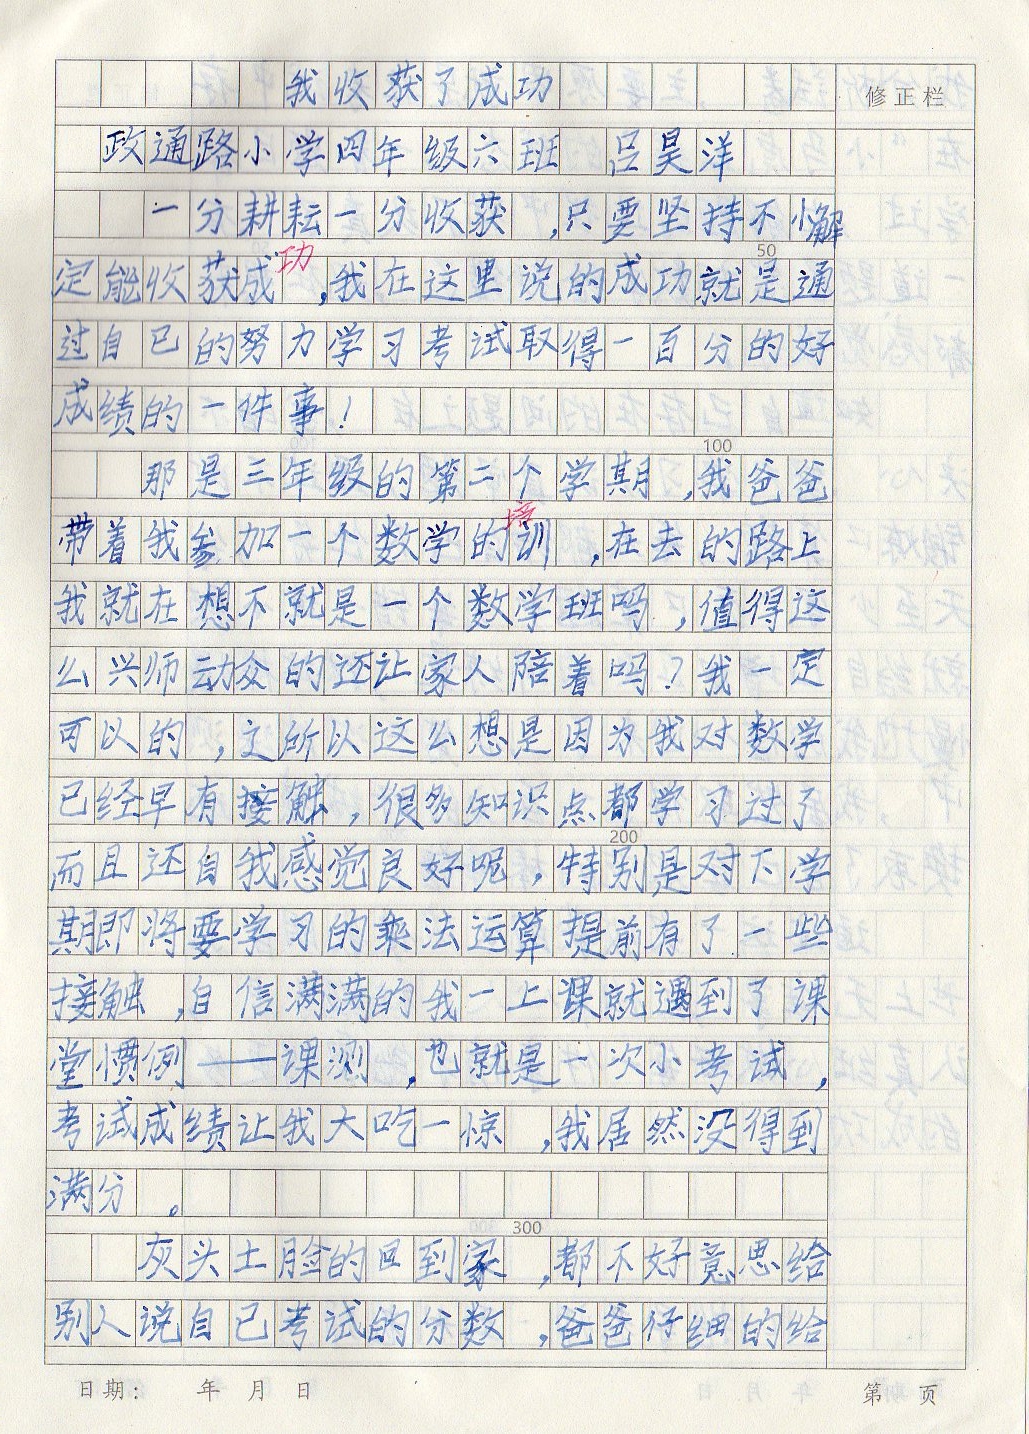 我收获了成功
修正栏
政通路小学四年级六班 吕昊洋
一分耕耘一分收获,只要坚持不小解
50
定能收获成功,我在这里说的成功就是通
过自已的努力学习考试取得一百分的好
成绩的一件事!
100
那是三年级的第二个学期,我爸爸
带着我参加一个数学的培训,在去的路上
我就在想不就是一个数学班吗,值得这
么兴师动众的还让家人陪着吗?我一定
可以的,之所以这么想是因为我对数学
已经早有接触,很多知识点都学习过了
200
而且还自我感觉良好呢,特别是对下学
期即将要学习的乘法运算提前有了一些
接触,自信满满的我一上课就遇到了课
堂惯例——课测,也就是一次小考试,
考试成绩让我大吃一惊,我居然没得到
满分。
300
灰头土脸的回到家,都不好意思给
别人说自已考试的分数,爸爸仔细的给
日期: 年 月 日
第 页